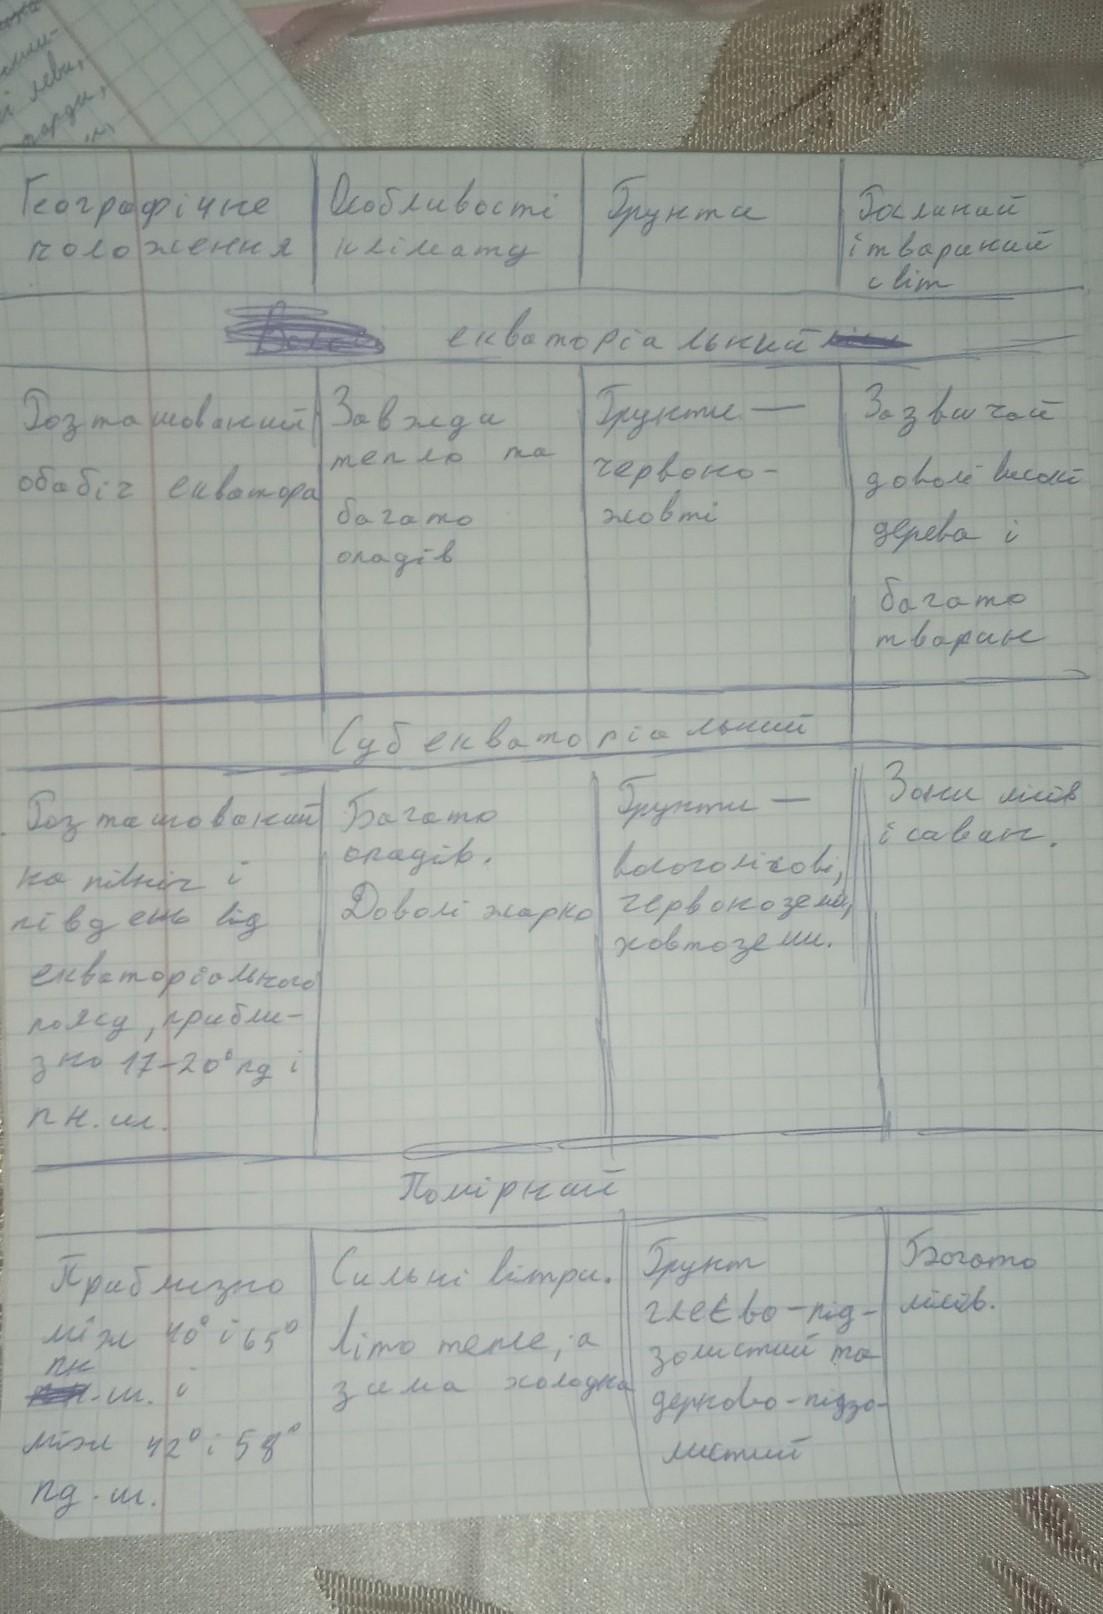 і леви,
Географічне
положення
Особливості
клімату
Грунти
Рослиний
і твариний
світ
екваторіальний
Розташований
обабіч екватора
Завжди
тепло та
багато
опадів
Грунти —
червоно-
жовті
Зазвичай
доволі високі
дерева і
багато
тварин
Субекваторіальний
Розташований
на північ і
південь від
екваторіального
поясу, прибли-
зно 17-20° пд і
пн. ш.
Багато
опадів.
Доволі жарко
Грунти —
вологолісові,
червоноземи,
жовтоземи.
Зони лісів
і саван.
Помірний
Приблизно
між 40° і 65°
пн
ш. і
між 42° і 58°
пд. ш.
Сильні вітри.
Літо тепле, а
зима холодна
Грунт
глеєво-під-
золистий та
дерново-підзо-
листий
Багато
лісів.